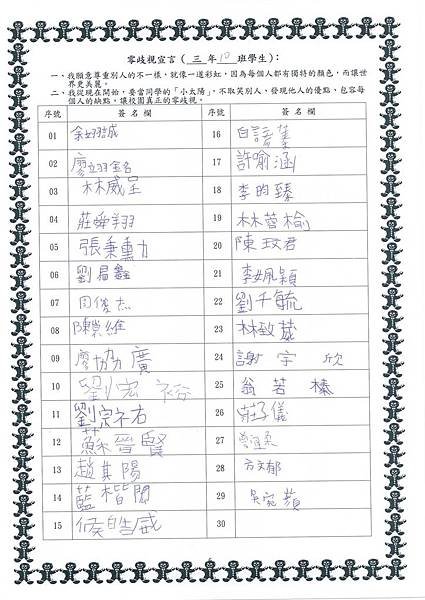 零歧視宣言（三年10班學生）：
一、我願意尊重別人的不一樣，就像一道彩虹，因為每個人都有獨特的顏色，而讓世
界更美麗。
二、我從現在開始，要當同學的「小太陽」，不取笑別人，發現他人的優點、包容每
個人的缺點，讓校園真正的零歧視。
序號 簽名欄 序號 簽名欄
01 余翊誠 16 白諺
02 廖翊銘 17 許喻涵
03 林威呈 18 李昀臻
04 莊舜翔 19 林蓉榆
05 張秉勳 20 陳玟君
06 劉昌鑫 21 李姵穎
07 周俊杰 22 劉千毓
08 陳維 23 林致葳
09 廖協廣 24 謝宇欣
10 劉宏裕 25 翁若榛
11 劉宗祐 26 莊子儀
12 蘇晉賢 27 曾
13 趙其陽 28 方文郁
14 藍楷閎 29 吳宛蘋
15 侯皓威 30